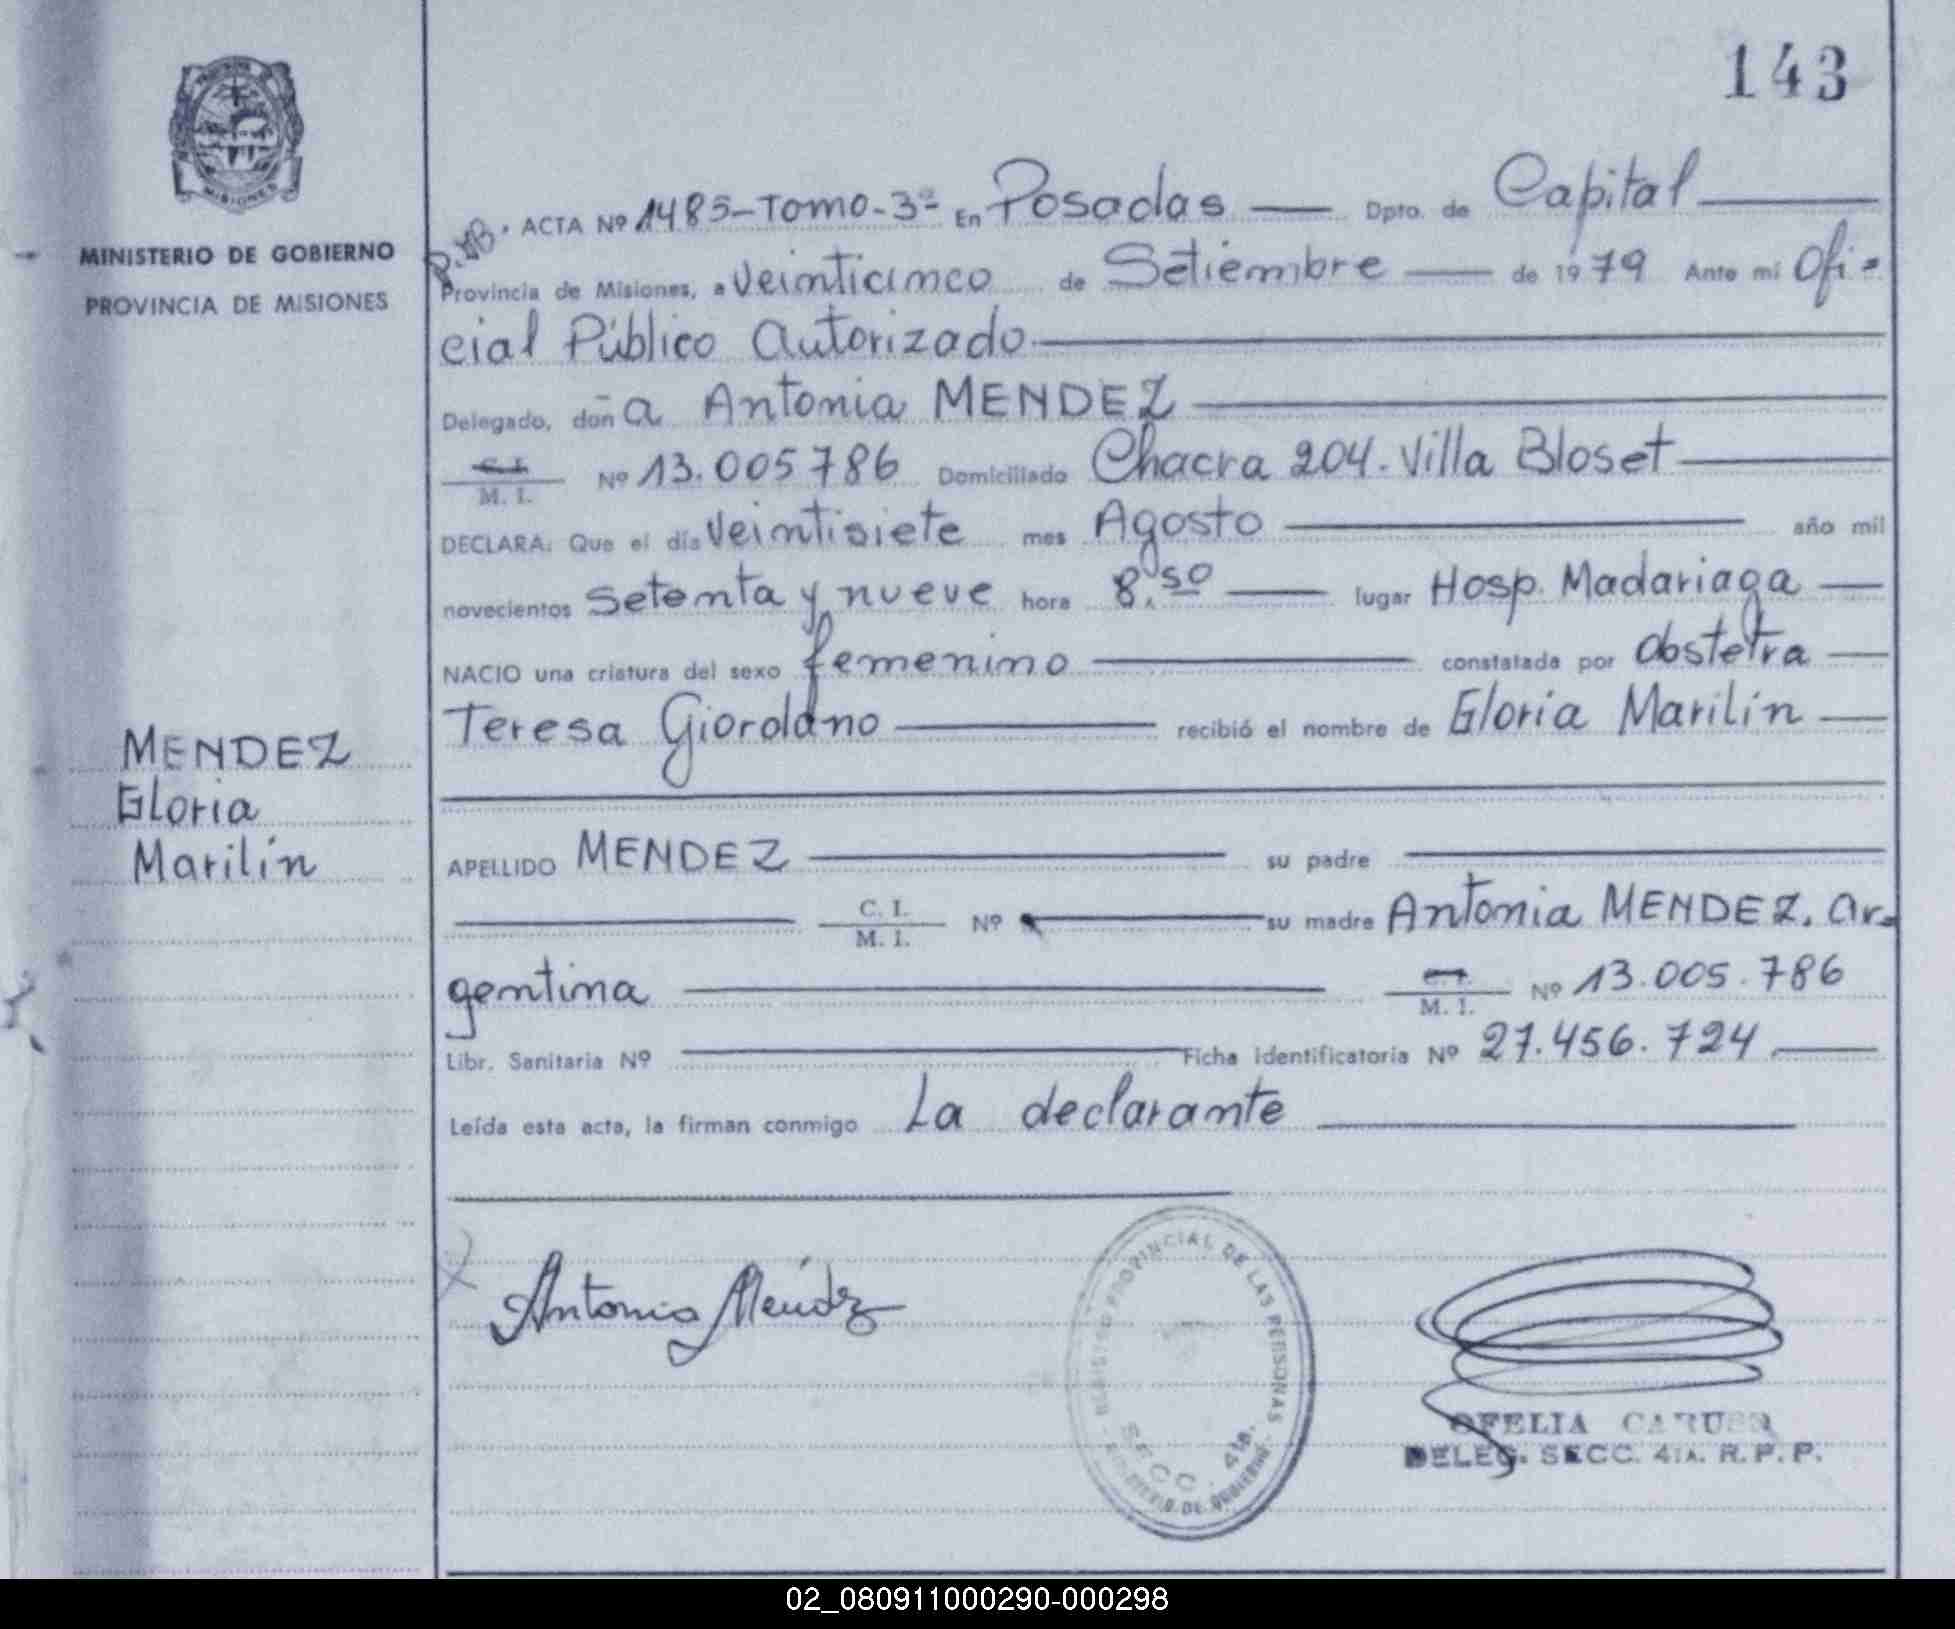 143
MISIONES
MINISTERIO DE GOBIERNO
PROVINCIA DE MISIONES
ACTA Nº 1485-Tomo-3º En Posadas Dpto. de Capital
Provincia de Misiones, a Veinticinco de Setiembre de 1979 Ante mi Ofi=
cial Público Autorizado
Delegado, doña Antonia MENDEZ
C. I. M. I. Nº 13.005786 Domiciliado Chacra 204. Villa Bloset
DECLARA: Que el día Veintisiete mes Agosto año mil
novecientos Setenta y nueve hora 8.50 lugar Hosp. Madariaga
NACIO una criatura del sexo femenino constatada por Obstetra
Teresa Giordano recibió el nombre de Gloria Marilín
MENDEZ
Gloria
Marilín
APELLIDO MENDEZ su padre
C. I. M. I. Nº su madre Antonia MENDEZ. Ar=
gentina C. I. M. I. Nº 13.005.786
Libr. Sanitaria Nº Ficha identificatoria Nº 27.456.724
Leída esta acta, la firman conmigo La declarante
Antonia Méndez
REGISTRO PROVINCIAL DE LAS PERSONAS
SECC. 4ta.
MINISTERIO DE GOBIERNO
OFELIA CARUSO
DELEG. SECC. 4TA. R. P. P.
02_080911000290-000298